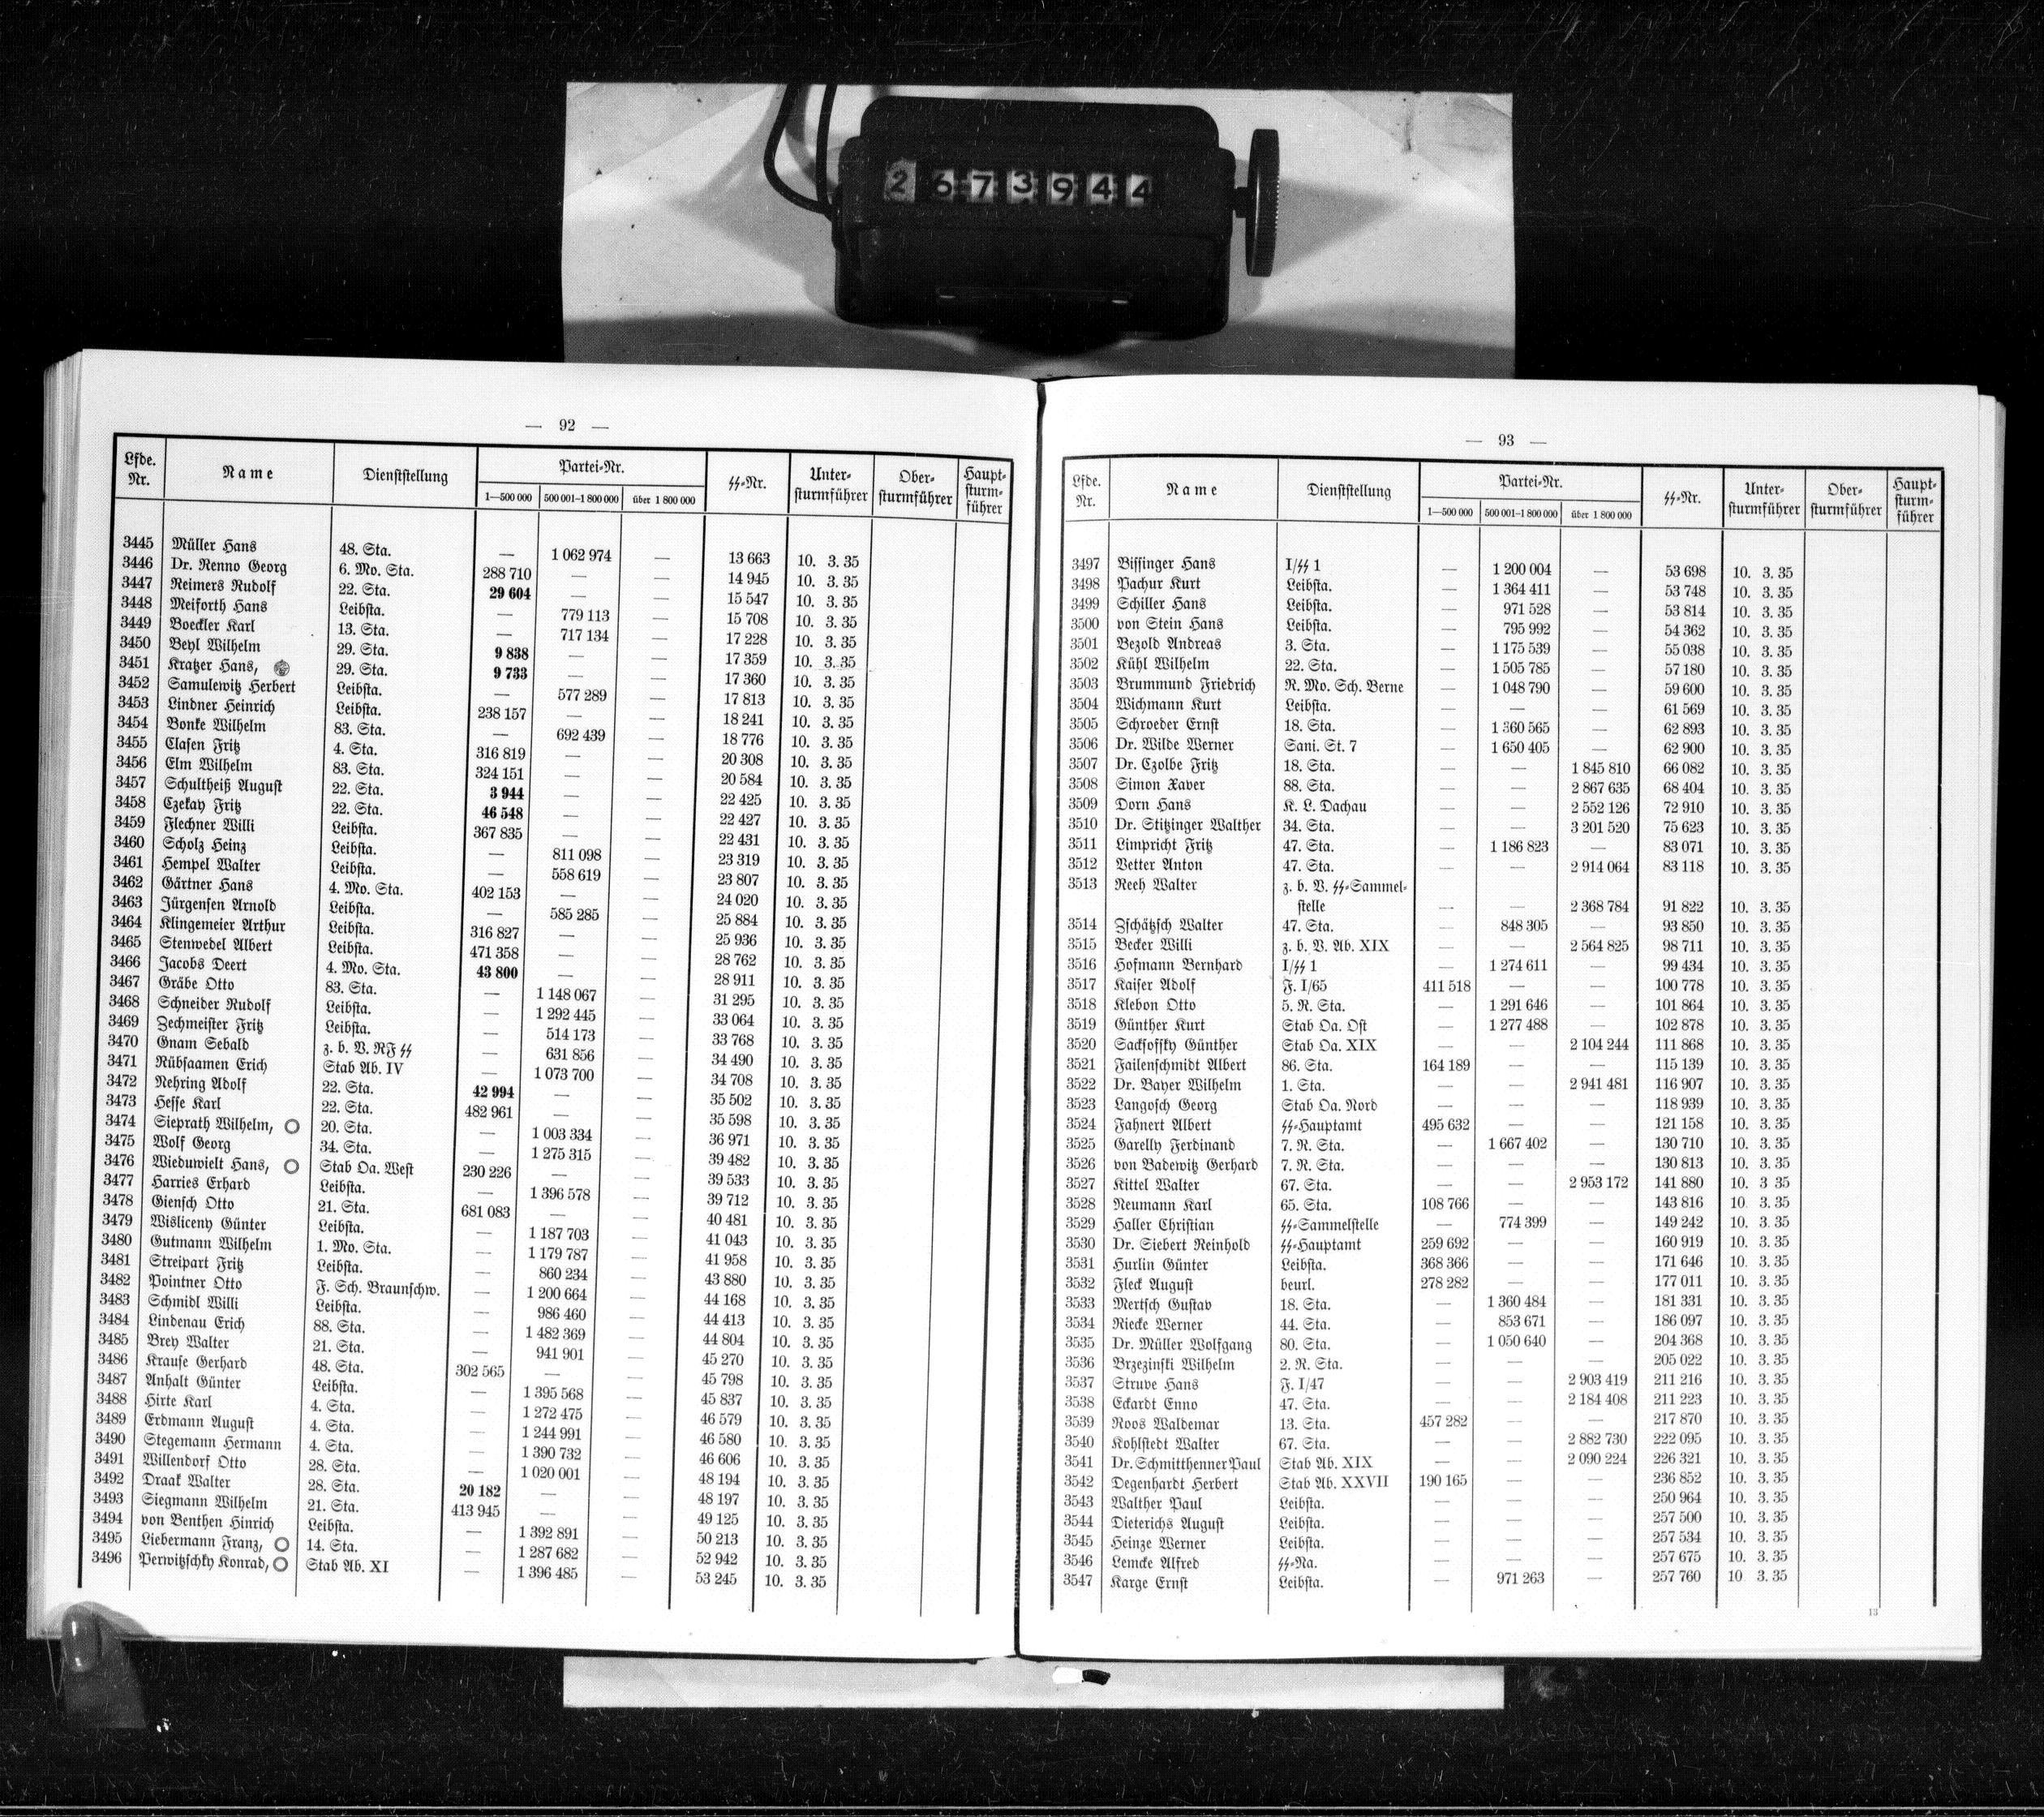 2 6 7 3 9 4 4
— 92 —
Lfde. Nr. Name Dienststellung Partei-Nr. 1—500 000 500 001–1 800 000 über 1 800 000 ᛋᛋ-Nr. Unter-sturmführer Ober-sturmführer Haupt-sturm-führer
3445 Müller Hans 48. Sta. — 1 062 974 — 13 663 10. 3. 35
3446 Dr. Renno Georg 6. Mo. Sta. 288 710 — — 14 945 10. 3. 35
3447 Reimers Rudolf 22. Sta. 29 604 — — 15 547 10. 3. 35
3448 Meiforth Hans Leibsta. — 779 113 — 15 708 10. 3. 35
3449 Boeckler Karl 13. Sta. — 717 134 — 17 228 10. 3. 35
3450 Beyl Wilhelm 29. Sta. 9 838 — — 17 359 10. 3. 35
3451 Kratzer Hans, 29. Sta. 9 733 — — 17 360 10. 3. 35
3452 Samulewitz Herbert Leibsta. — 577 289 — 17 813 10. 3. 35
3453 Lindner Heinrich Leibsta. 238 157 — — 18 241 10. 3. 35
3454 Bonke Wilhelm 83. Sta. — 692 439 — 18 776 10. 3. 35
3455 Clasen Fritz 4. Sta. 316 819 — — 20 308 10. 3. 35
3456 Elm Wilhelm 83. Sta. 324 151 — — 20 584 10. 3. 35
3457 Schultheiß August 22. Sta. 3 944 — — 22 425 10. 3. 35
3458 Czekay Fritz 22. Sta. 46 548 — — 22 427 10. 3. 35
3459 Flechner Willi Leibsta. 367 835 — — 22 431 10. 3. 35
3460 Scholz Heinz Leibsta. — 811 098 — 23 319 10. 3. 35
3461 Hempel Walter Leibsta. — 558 619 — 23 807 10. 3. 35
3462 Gärtner Hans 4. Mo. Sta. 402 153 — — 24 020 10. 3. 35
3463 Jürgensen Arnold Leibsta. — 585 285 — 25 884 10. 3. 35
3464 Klingemeier Arthur Leibsta. 316 827 — — 25 936 10. 3. 35
3465 Stenwedel Albert Leibsta. 471 358 — — 28 762 10. 3. 35
3466 Jacobs Deert 4. Mo. Sta. 43 800 — — 28 911 10. 3. 35
3467 Gräbe Otto 83. Sta. — 1 148 067 — 31 295 10. 3. 35
3468 Schneider Rudolf Leibsta. — 1 292 445 — 33 064 10. 3. 35
3469 Zechmeister Fritz Leibsta. — 514 173 — 33 768 10. 3. 35
3470 Gnam Sebald z. b. V. RF ᛋᛋ — 631 856 — 34 490 10. 3. 35
3471 Rübsaamen Erich Stab Ab. IV — 1 073 700 — 34 708 10. 3. 35
3472 Nehring Adolf 22. Sta. 42 994 — — 35 502 10. 3. 35
3473 Hesse Karl 22. Sta. 482 961 — — 35 598 10. 3. 35
3474 Sieprath Wilhelm, ○ 20. Sta. — 1 003 334 — 36 971 10. 3. 35
3475 Wolf Georg 34. Sta. — 1 275 315 — 39 482 10. 3. 35
3476 Wieduwielt Hans, ○ Stab Oa. West 230 226 — — 39 533 10. 3. 35
3477 Harries Erhard Leibsta. — 1 396 578 — 39 712 10. 3. 35
3478 Giensch Otto 21. Sta. 681 083 — — 40 481 10. 3. 35
3479 Wisliceny Günter Leibsta. — 1 187 703 — 41 043 10. 3. 35
3480 Gutmann Wilhelm 1. Mo. Sta. — 1 179 787 — 41 958 10. 3. 35
3481 Streipart Fritz Leibsta. — 860 234 — 43 880 10. 3. 35
3482 Pointner Otto F. Sch. Braunschw. — 1 200 664 — 44 168 10. 3. 35
3483 Schmidl Willi Leibsta. — 986 460 — 44 413 10. 3. 35
3484 Lindenau Erich 88. Sta. — 1 482 369 — 44 804 10. 3. 35
3485 Brey Walter 21. Sta. — 941 901 — 45 270 10. 3. 35
3486 Krause Gerhard 48. Sta. 302 565 — — 45 798 10. 3. 35
3487 Anhalt Günter Leibsta. — 1 395 568 — 45 837 10. 3. 35
3488 Hirte Karl 4. Sta. — 1 272 475 — 46 579 10. 3. 35
3489 Erdmann August 4. Sta. — 1 244 991 — 46 580 10. 3. 35
3490 Stegemann Hermann 4. Sta. — 1 390 732 — 46 606 10. 3. 35
3491 Willendorf Otto 28. Sta. — 1 020 001 — 48 194 10. 3. 35
3492 Draak Walter 28. Sta. 20 182 — — 48 197 10. 3. 35
3493 Siegmann Wilhelm 21. Sta. 413 945 — — 49 125 10. 3. 35
3494 von Benthen Hinrich Leibsta. — 1 392 891 — 50 213 10. 3. 35
3495 Liebermann Franz, ○ 14. Sta. — 1 287 682 — 52 942 10. 3. 35
3496 Perwitzschky Konrad, ○ Stab Ab. XI — 1 396 485 — 53 245 10. 3. 35
— 93 —
Lfde. Nr. Name Dienststellung Partei-Nr. 1—500 000 500 001–1 800 000 über 1 800 000 ᛋᛋ-Nr. Unter-sturmführer Ober-sturmführer Haupt-sturm-führer
3497 Bissinger Hans I/ᛋᛋ 1 — 1 200 004 — 53 698 10. 3. 35
3498 Pachur Kurt Leibsta. — 1 364 411 — 53 748 10. 3. 35
3499 Schiller Hans Leibsta. — 971 528 — 53 814 10. 3. 35
3500 von Stein Hans Leibsta. — 795 992 — 54 362 10. 3. 35
3501 Bezold Andreas 3. Sta. — 1 175 539 — 55 038 10. 3. 35
3502 Kühl Wilhelm 22. Sta. — 1 505 785 — 57 180 10. 3. 35
3503 Brummund Friedrich R. Mo. Sch. Berne — 1 048 790 — 59 600 10. 3. 35
3504 Wichmann Kurt Leibsta. — — — 61 569 10. 3. 35
3505 Schroeder Ernst 18. Sta. — 1 360 565 — 62 893 10. 3. 35
3506 Dr. Wilde Werner Sani. St. 7 — 1 650 405 — 62 900 10. 3. 35
3507 Dr. Czolbe Fritz 18. Sta. — — 1 845 810 66 082 10. 3. 35
3508 Simon Xaver 88. Sta. — — 2 867 635 68 404 10. 3. 35
3509 Dorn Hans K. L. Dachau — — 2 552 126 72 910 10. 3. 35
3510 Dr. Stitzinger Walther 34. Sta. — — 3 201 520 75 623 10. 3. 35
3511 Limpricht Fritz 47. Sta. — 1 186 823 — 83 071 10. 3. 35
3512 Vetter Anton 47. Sta. — — 2 914 064 83 118 10. 3. 35
3513 Reeh Walter z. b. V. ᛋᛋ-Sammel-
stelle — — 2 368 784 91 822 10. 3. 35
3514 Zschätzsch Walter 47. Sta. — 848 305 — 93 850 10. 3. 35
3515 Becker Willi z. b. V. Ab. XIX — — 2 564 825 98 711 10. 3. 35
3516 Hofmann Bernhard I/ᛋᛋ 1 — 1 274 611 — 99 434 10. 3. 35
3517 Kaiser Adolf F. I/65 411 518 — — 100 778 10. 3. 35
3518 Klebon Otto 5. R. Sta. — 1 291 646 — 101 864 10. 3. 35
3519 Günther Kurt Stab Oa. Ost — 1 277 488 — 102 878 10. 3. 35
3520 Sacksofsky Günther Stab Oa. XIX — — 2 104 244 111 868 10. 3. 35
3521 Failenschmidt Albert 86. Sta. 164 189 — — 115 139 10. 3. 35
3522 Dr. Bayer Wilhelm 1. Sta. — — 2 941 481 116 907 10. 3. 35
3523 Langosch Georg Stab Oa. Nord — — — 118 939 10. 3. 35
3524 Fahnert Albert ᛋᛋ-Hauptamt 495 632 — — 121 158 10. 3. 35
3525 Garelly Ferdinand 7. R. Sta. — 1 667 402 — 130 710 10. 3. 35
3526 von Badewitz Gerhard 7. R. Sta. — — — 130 813 10. 3. 35
3527 Kittel Walter 67. Sta. — — 2 953 172 141 880 10. 3. 35
3528 Neumann Karl 65. Sta. 108 766 — — 143 816 10 3. 35
3529 Haller Christian ᛋᛋ-Sammelstelle — 774 399 — 149 242 10. 3. 35
3530 Dr. Siebert Reinhold ᛋᛋ-Hauptamt 259 692 — — 160 919 10. 3. 35
3531 Hurlin Günter Leibsta. 368 366 — — 171 646 10. 3. 35
3532 Fleck August beurl. 278 282 — — 177 011 10. 3. 35
3533 Mertsch Gustav 18. Sta. — 1 360 484 — 181 331 10. 3. 35
3534 Riecke Werner 44. Sta. — 853 671 — 186 097 10. 3. 35
3535 Dr. Müller Wolfgang 80. Sta. — 1 050 640 — 204 368 10. 3. 35
3536 Brzezinski Wilhelm 2. R. Sta. — — — 205 022 10. 3. 35
3537 Struve Hans F. I/47 — — 2 903 419 211 216 10. 3. 35
3538 Eckardt Enno 47. Sta. — — 2 184 408 211 223 10. 3. 35
3539 Roos Waldemar 13. Sta. 457 282 — — 217 870 10. 3. 35
3540 Kohlstedt Walter 67. Sta. — — 2 882 730 222 095 10. 3. 35
3541 Dr. Schmitthenner Paul Stab Ab. XIX — — 2 090 224 226 321 10. 3. 35
3542 Degenhardt Herbert Stab Ab. XXVII 190 165 — — 236 852 10. 3. 35
3543 Walther Paul Leibsta. — — — 250 964 10. 3. 35
3544 Dieterichs August Leibsta. — — — 257 500 10. 3. 35
3545 Heinze Werner Leibsta. — — — 257 534 10. 3. 35
3546 Lemcke Alfred ᛋᛋ-Na. — — — 257 675 10. 3. 35
3547 Karge Ernst Leibsta. — 971 263 — 257 760 10 3. 35
13